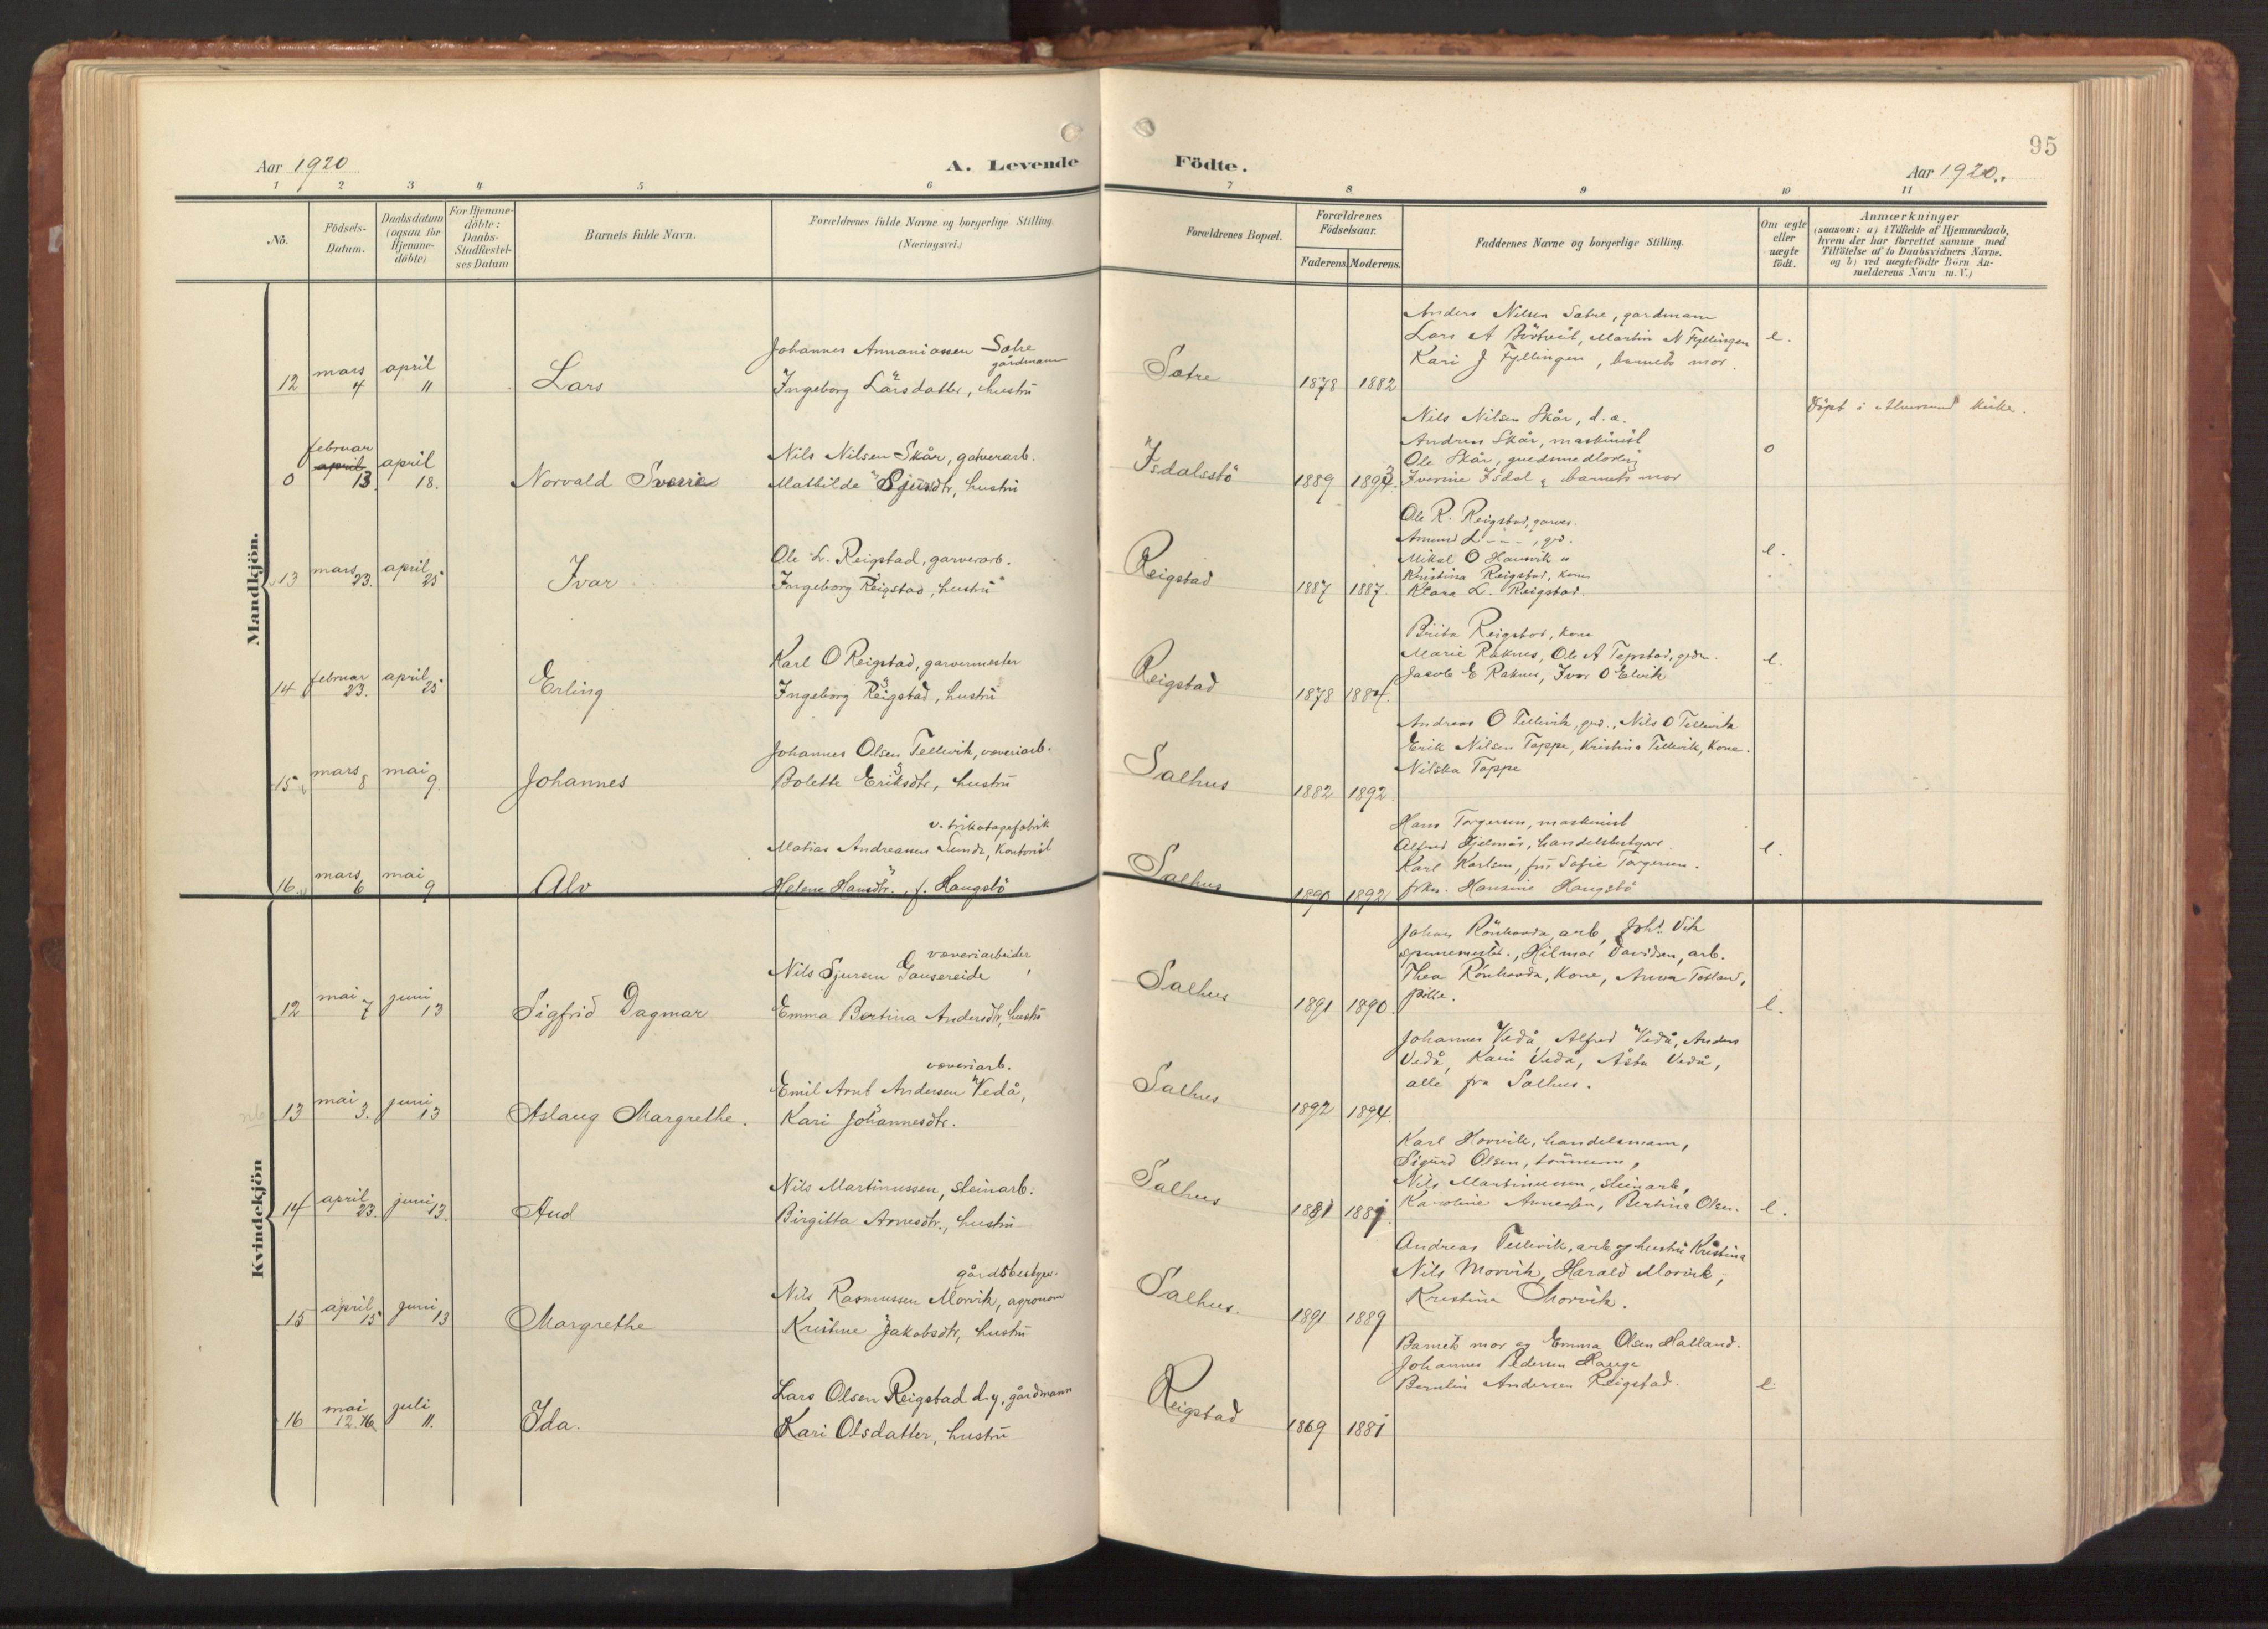 95
Aar 1920
A. Levende Födte.
Aar 1920.
1 2 3 4 5 6 7 8 9 10 11
No.
Födsels-
Datum.
Daabsdatum
(ogsaa for
Hjemme-
döbte)
For Hjemme-
döbte:
Daabs-
Stadfæstel-
ses Datum
Barnets fulde Navn.
Forældrenes fulde Navne og borgerlige Stilling.
(Næringsvei.)
Forældrenes Bopæl.
Forældrenes
Födselsaar.
Faderens. Moderens.
Faddernes Navne og borgerlige Stilling.
Om ægte
eller
uægte
födt.
Anmærkninger
(saasom: a) i Tilfælde af Hjemmedaab,
hvem der har forrettet samme med
Tilföielse af to Daabsvidners Navne,
og b) ved uægtefödte Börn An-
melderens Navn m. V.)
Mandkjön.
12
mars
4
april
11
Lars
Johannes Annaniassen Sætre
gårdmann
Ingeborg Larsdatter, hustru
Sætre
1878 1882
Anders Nilsen Sætre, gardmann
Lars A Martin N Fyllingen
Kari J Fyllingen, barnets mor.
e.
0
februar
april
13.
april
18.
Norvald Sverre
Nils Nilsen Skår, garverarb.
Mathilde Sjursdtr, hustru
Isdalsstö
1889 1893
Nils Nilsen Skår, d. æ.
Andreas Skår, maskinist
Ole Skår,
Iverine Isdal, barnets mor
o
Döpt i Alversund kirke.
13
mars
23.
april
25
Ivar
Ole L. Reigstad, garverarb.
Ingeborg Reigstad, hustru
Reigstad
1887 1887.
Ole R. Reigstad, garver.
Amund L - " - , grd.
Mikal O Hamvik "
Kristina Reigstad, kone
Klara L. Reigstad.
e.
14
februar
23.
april
25
Erling
Karl O Reigstad, garvermester
Ingeborg Reigstad, hustru
Reigstad
1878 1884.
Brita Reigstad, kone
Marie Raknes, Ole A Tepstad, grdm.
Jacob E Raknes, Ivar O Elvik
e.
15
mars
8
mai
9.
Johannes
Johannes Olsen Tellevik, væveriarb.
Bolette Eriksdtr, hustru
Salhus
1882 1892
Andreas O Tellevik, grd., Nils O Tellevik
Erik Nilsen Toppe, Kristina Tellevik, Kone.
Nilska Toppe
16
mars
6
mai
9
Alv
v. trikotagefabrik
Matias Andreasen Sunde, kontorist
Helene Hansdtr., f. Haugstö
Salhus
1890 1892
Hans Torgersen, maskinist
Alfred Hjelmås, handelsbestyrer
Karl Karlsen, fru Sofie Torgersen.
frkn. Hansine Haugstö
e.
Kvindekjön
12
mai
7
juni
13
Sigfrid Dagmar
væveriarbeider
Nils Sjursen Gausereide,
Emma Bertina Andersdtr, hustru
Salhus
1891 1890.
Johan Rönhovda, arb, Johs. Vik
spinnemester., Hilmar Davidsen, arb.
Thea Rönhovda, Kone, Anna Tosland,
pike.
e.
13
mai
3.
juni
13
Aslaug Margrethe.
væveriarb.
Emil Arnt Andersen Vedå,
Kari Johannesdtr.
Salhus
1892 1894.
Johannes Vedå, Alfred Vedå, Anders
Vedå, Kari Vedå, Åsta Vedå,
alle fra Salhus.
14
april
23.
juni
13.
Aud
Nils Martinussen, steinarb.
Birgitta Arnesdtr., hustru
Salhus
1881 1889.
Karl Horvik, handelsmann,
Sigurd Olsen,
Nils Martinussen, steinarb,
Karoline Bertina Olsen.
e.
15
april
15
juni
13
Margrethe
gårdsbestyrer.
Nils Rasmussen Morvik, agronom
Kristine Jakobsdtr, hustru
Salhus.
1891 1889
Andreas Tellevik, arb og hustru Kristina
Nils Morvik, Harald Morvik,
Kristina Morvik.
16
mai
12.
juli
11.
Ida.
Lars Olsen Reigstad d.y, gårdmann
Kari Olsdatter, hustru
Reigstad
1869 1881
Barnets mor og Emma Olsen Hatland.
Johannes Pedersen Hauge
Berntin Andersen Reigstad.
e